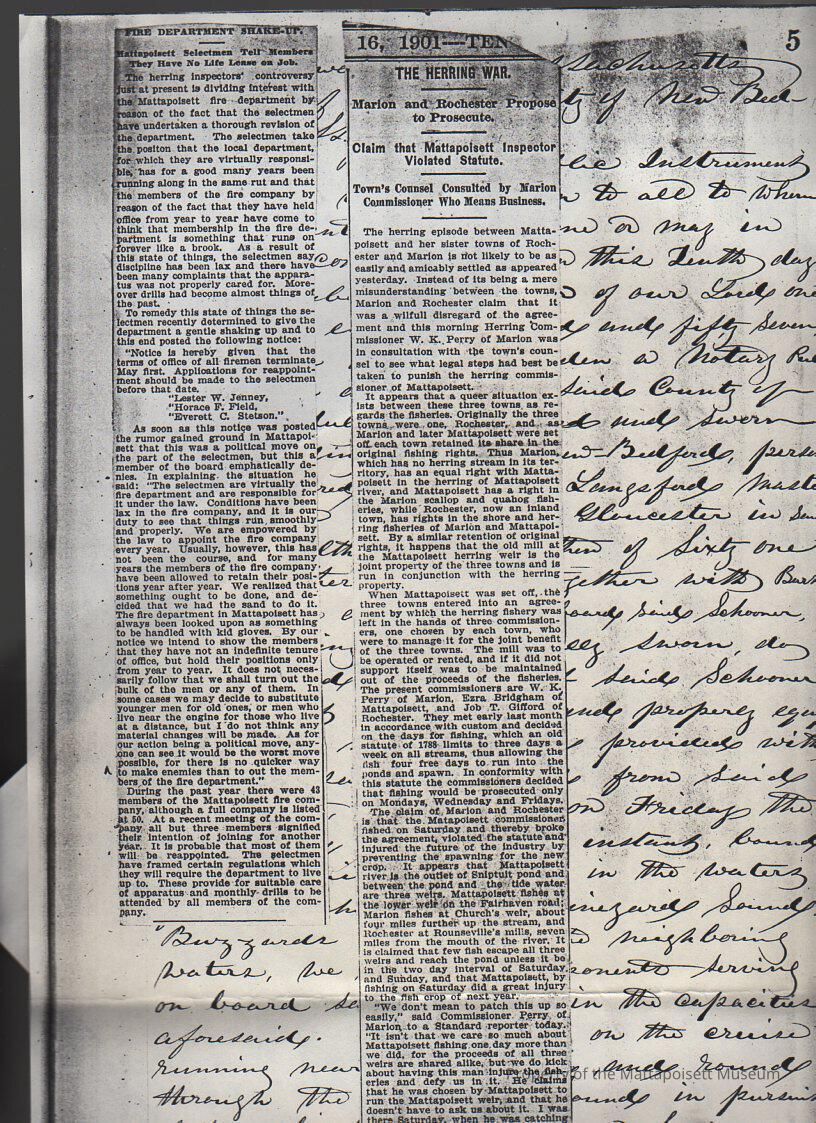 FIRE DEPARTMENT SHAKE-UP.
Mattapoisett Selectmen Tell Members
They Have No Life Lease on Job.
The herring inspectors' controversy
just at present is dividing interest with
the Mattapoisett fire department by
reason of the fact that the selectmen
have undertaken a thorough revision of
the department. The selectmen take
the positon that the local department,
for which they are virtually responsi-
ble, has for a good many years been
running along in the same rut and that
the members of the fire company by
reason of the fact that they have held
office from year to year have come to
think that membership in the fire de-
partment is something that runs on
forever like a brook. As a result of
this state of things, the selectmen say
discipline has been lax and there have
been many complaints that the appara-
tus was not properly cared for. More-
over drills had become almost things of
the past.
To remedy this state of things the se-
lectmen recently determined to give the
department a gentle shaking up and to
this end posted the following notice:
"Notice is hereby given that the
terms of office of all firemen terminate
May first. Applications for reappoint-
ment should be made to the selectmen
before that date.
"Lester W. Jenney,
"Horace F. Field,
"Everett C. Stetson."
As soon as this notice was posted
the rumor gained ground in Mattapoi-
sett that this was a political move on
the part of the selectmen, but this a
member of the board emphatically de-
nies. In explaining the situation he
said: "The selectmen are virtually the
fire department and are responsible for
it under the law. Conditions have been
lax in the fire company, and it is our
duty to see that things run smoothly
and properly. We are empowered by
the law to appoint the fire company
every year. Usually, however, this has
not been the course, and for many
years the members of the fire company
have been allowed to retain their posi-
tions year after year. We realized that
something ought to be done, and de-
cided that we had the sand to do it.
The fire department in Mattapoisett has
always been looked upon as something
to be handled with kid gloves. By our
notice we intend to show the members
that they have not an indefinite tenure
of office, but hold their positions only
from year to year. It does not neces-
sarily follow that we shall turn out the
bulk of the men or any of them. In
some cases we may decide to substitute
younger men for old ones, or men who
live near the engine for those who live
at a distance, but I do not think any
material changes will be made. As for
our action being a political move, any-
one can see it would be the worst move
possible, for there is no quicker way
to make enemies than to out the mem-
bers of the fire department."
During the past year there were 43
members of the Mattapoisett fire com-
pany, although a full company is listed
at 50. At a recent meeting of the com-
pany all but three members signified
their intention of joining for another
year. It is probable that most of them
will be reappointed. The selectmen
have framed certain regulations which
they will require the department to live
up to. These provide for suitable care
of apparatus and monthly drills to be
attended by all members of the com-
pany.
16, 1901—TEN
THE HERRING WAR.
Marion and Rochester Propose
to Prosecute.
Claim that Mattapoisett Inspector
Violated Statute.
Town's Counsel Consulted by Marion
Commissioner Who Means Business.
The herring episode between Matta-
poisett and her sister towns of Roch-
ester and Marion is not likely to be as
easily and amicably settled as appeared
yesterday. Instead of its being a mere
misunderstanding between the towns,
Marion and Rochester claim that it
was a wilfull disregard of the agree-
ment and this morning Herring Com-
missioner W. K. Perry of Marion was
in consultation with the town's coun-
sel to see what legal steps had best be
taken to punish the herring commis-
sioner of Mattapoisett.
It appears that a queer situation ex-
ists between these three towns as re-
gards the fisheries. Originally the three
towns were one, Rochester, and as
Marion and later Mattapoisett were set
off each town retained its share in the
original fishing rights. Thus Marion,
which has no herring stream in its ter-
ritory, has an equal right with Matta-
poisett in the herring of Mattapoisett
river, and Mattapoisett has a right in
the Marion scallop and quahog fish-
eries, while Rochester, now an inland
town, has rights in the shore and her-
ring fisheries of Marion and Mattapoi-
sett. By a similar retention of original
rights, it happens that the old mill at
the Mattapoisett herring weir is the
joint property of the three towns and is
run in conjunction with the herring
property.
When Mattapoisett was set off, the
three towns entered into an agree-
ment by which the herring fishery was
left in the hands of three commission-
ers, one chosen by each town, who
were to manage it for the joint benefit
of the three towns. The mill was to
be operated or rented, and if it did not
support itself was to be maintained
out of the proceeds of the fisheries.
The present commissioners are W. K.
Perry of Marion, Ezra Bridgham of
Mattapoisett, and Job T. Gifford of
Rochester. They met early last month
in accordance with custom and decided
on the days for fishing, which an old
statute of 1788 limits to three days a
week on all streams, thus allowing the
fish four free days to run into the
ponds and spawn. In conformity with
this statute the commissioners decided
that fishing would be prosecuted only
on Mondays, Wednesday and Fridays.
The claim of Marion and Rochester
is that the Mattapoisett commissioner
fished on Saturday and thereby broke
the agreement, violated the statute and
injured the future of the industry by
preventing the spawning for the new
crop. It appears that Mattapoisett
river is the outlet of Sniptuit pond and
between the pond and the tide water
are three weirs. Mattapoisett fishes at
the lower weir on the Fairhaven road;
Marion fishes at Church's weir, about
four miles further up the stream, and
Rochester at Rounseville's mills, seven
miles from the mouth of the river. It
is claimed that few fish escape all three
weirs and reach the pond unless it be
in the two day interval of Saturday
and Sunday, and that Mattapoisett, by
fishing on Saturday did a great injury
to the fish crop of next year.
"We don't mean to patch this up so
easily," said Commissioner Perry of
Marion to a Standard reporter today.
"It isn't that we care so much about
Mattapoisett fishing one day more than
we did, for the proceeds of all three
weirs are shared alike, but we do kick
about having this man injure the fish-
eries and defy us in it. He claims
that he was chosen by Mattapoisett to
run the Mattapoisett weir, and that he
doesn't have to ask us about it. I was
there Saturday, when he was catching
5
ssachusetts
ty of New Bed-
lic Instrument
to all to whom
me or may in
this Tenth day
of our Lord one
and fifty seven
den a Notary Pub
said County of
and sworn
w-Bedford, perso
Langsford Maste
Gloucester in
then of Sixty one
gether with Burt
board said Schooner,
ly sworn, do
said Schooner
and properly equ
provided with
from said
on Friday the
instant, bound
in the waters
ineyard Sound
neighboring
ponents serving
in the capacities
on the cruise
and round
ounds in pursuit
"Buzzards
waters, we
on board
aforesaid.
running near
through the
Property of the Mattapoisett Museum